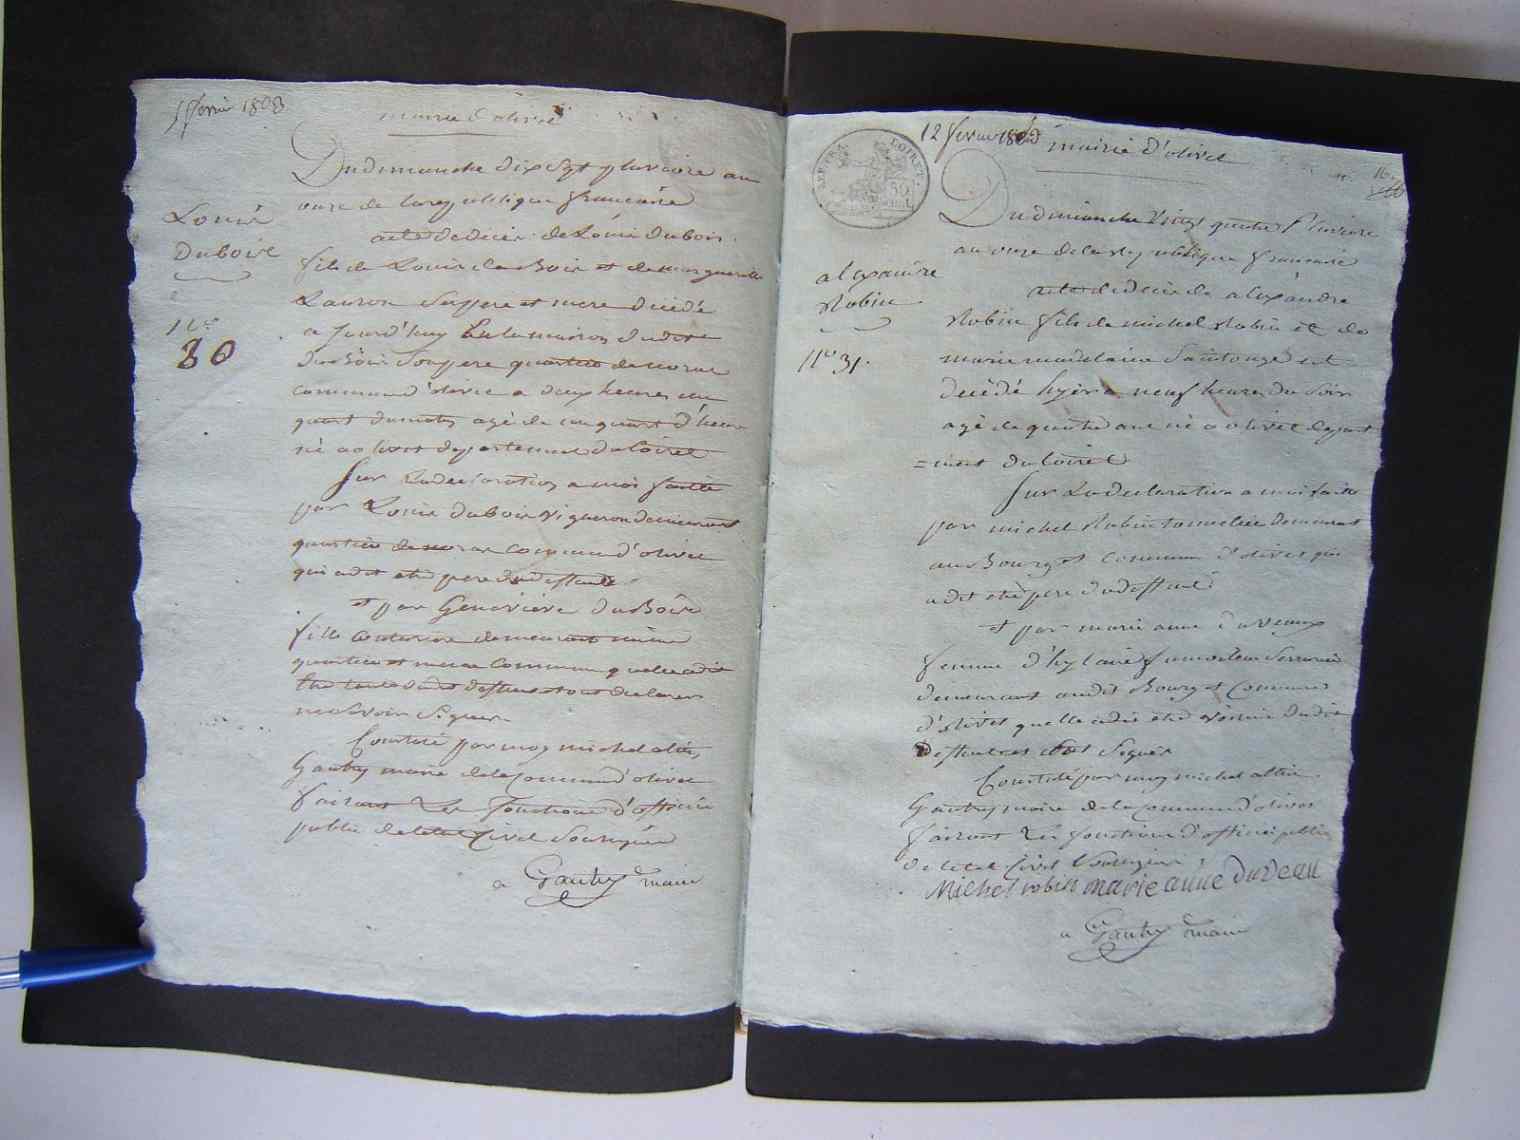 5 fevrier 1803
mairie d'olivet
Du dimanche dix sept pluviose an
onze de la republique francaise
acte de decès de Louis Dubois
Louis
Dubois
fils de Louis duBois et de marguerite
Lauron ses pere et mere décédé
a jourd'huy en la maison dudit
duBois son pere quartier de
commune d'olivet a deux heures un
quart du matin agé de un quart d'heure
né a olivet departement du loiret
n°
30
Sur La declaration a moi faitte
par Louis duBois vigneron demeurant
quartier de commune d'olivet
qui a dit etre pere du deffunt
et par Genevieve duBois
fille demeurant même
quartier et meme commune quelle a dit
etre tante dudit deffunt et ont declarer
ne savoir signer
Constaté par moy michel altin
Gautry maire de la Commune d'olivet
faisant Les fonctions d'officier
public de letat Civil Soussigné
a Gautry maire
12 fevrier 1803
mairie d'olivet
16
LOIRET
50
Du dimanche vingt quatre Pluviose
an onze de la republique francaise
acte de decès de alexandre
alexandre
Robin
Robin fils de michel Robin et de
marie madelaine Saintonge est
décédé hyer a neuf heures du soir
agé de quatre ans né a olivet depart
=ment du loiret
n° 31.
Sur La declaration a moi faite
par michel Robin tonnelier demeurant
au Bourg et commune d'olivet qui
a dit etre pere du deffunt
et par marie anne duveaux
femme d'hylaire serrurier
demeurant audit Bourg et Commune
d'olivet quelle a dit etre voisine dudit
deffunt et ont Signér
Constaté par moy michel altin
Gautry maire de la Commune d'olivet
faisant Les fonctions d'officier public
de letat Civil Soussigné
Michel robin marie anne duveau
a Gautry maire